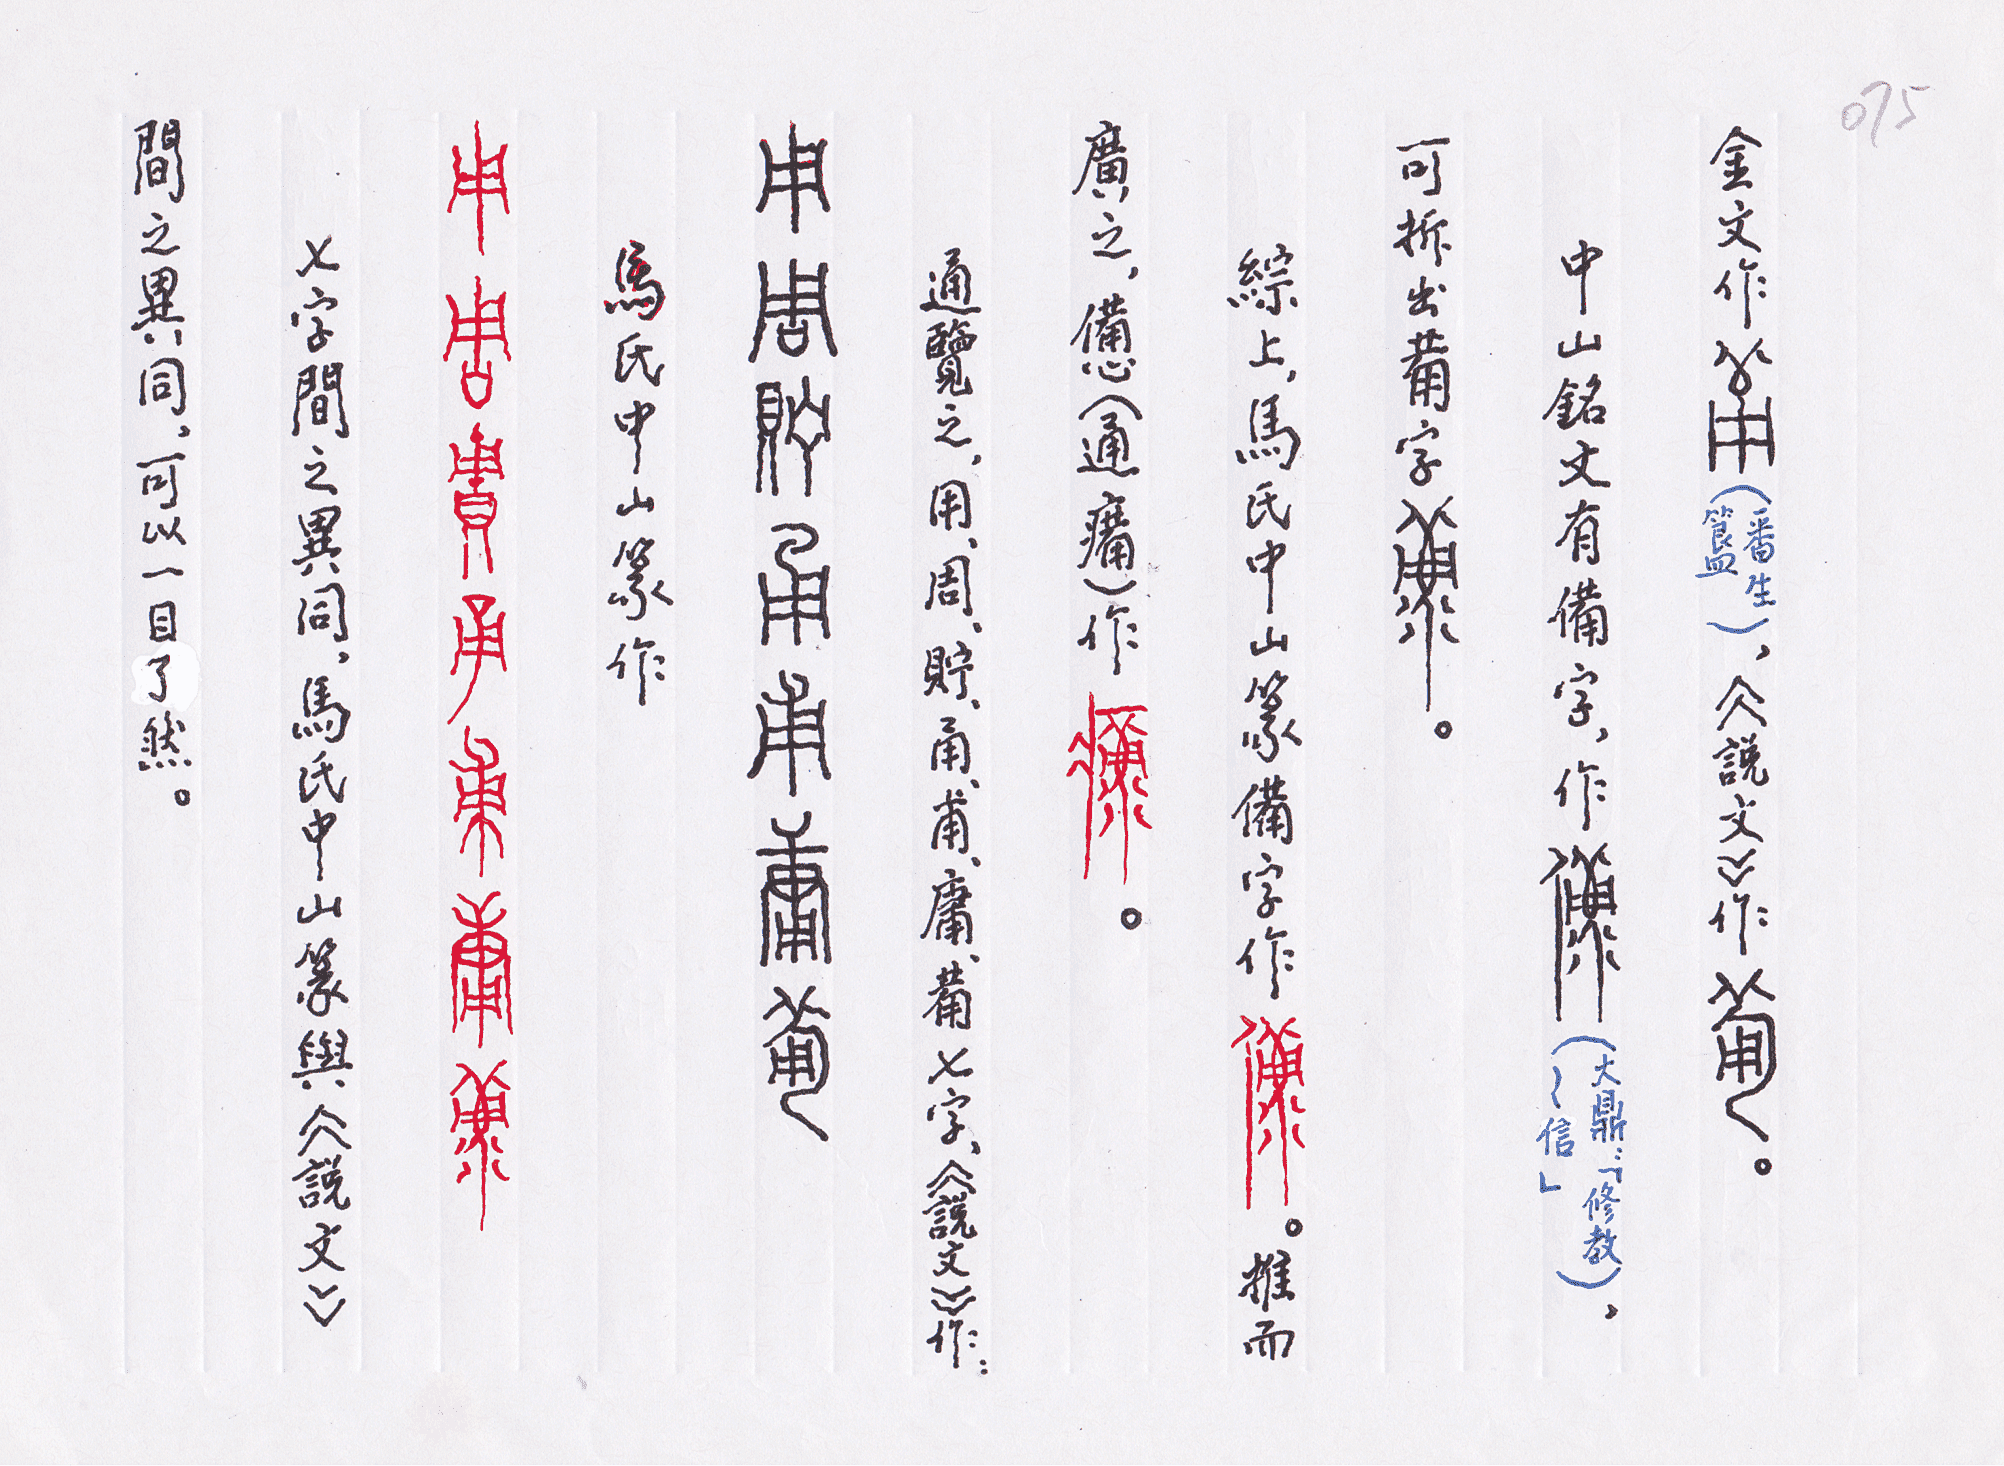 075
金文作(番生簋),《說文》作。
中山銘文有備字,作(大鼎:「修教~信」),
可拆出𤰇字。
綜上,馬氏中山篆備字作。推而
廣之,憊(通㾱)作。
通覽之,用、周、貯、甬、甫、庸、𤰇七字,《說文》作:
用周貯甬甫庸𤰇
馬氏中山篆作
用周貯甬甫庸𤰇
七字間之異同,馬氏中山篆與《說文》
間之異同,可以一目了然。